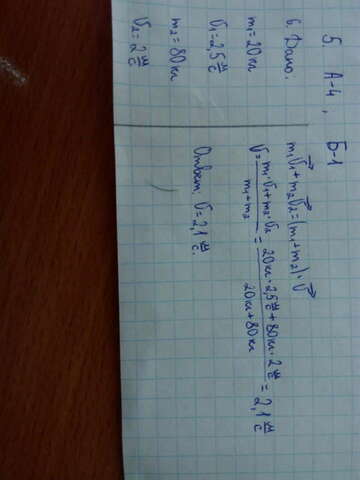 5. А-4, Б-1
6. Дано:
m₁=20 кг
υ₁=2,5 м/с
m₂=80 кг
υ₂=2 м/с
m₁υ₁+m₂υ₂=(m₁+m₂)·υ
υ=(m₁·υ₁+m₂·υ₂)/(m₁+m₂)=(20кг·2,5 м/с+80кг·2 м/с)/(20кг+80кг)=2,1 м/с
Ответ: υ=2,1 м/с.